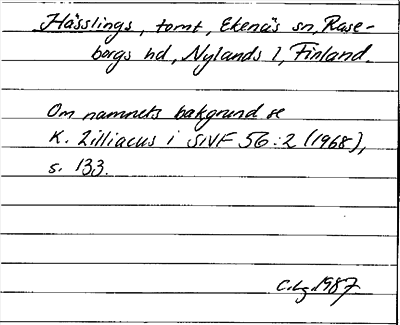 Hässlings, tomt, Ekenäs sn, Rase-
borgs hd, Nylands l, Finland.
Om namnets bakgrund se
K. Zilliacus i SNF 56:2 (1968),
s. 133.
1987